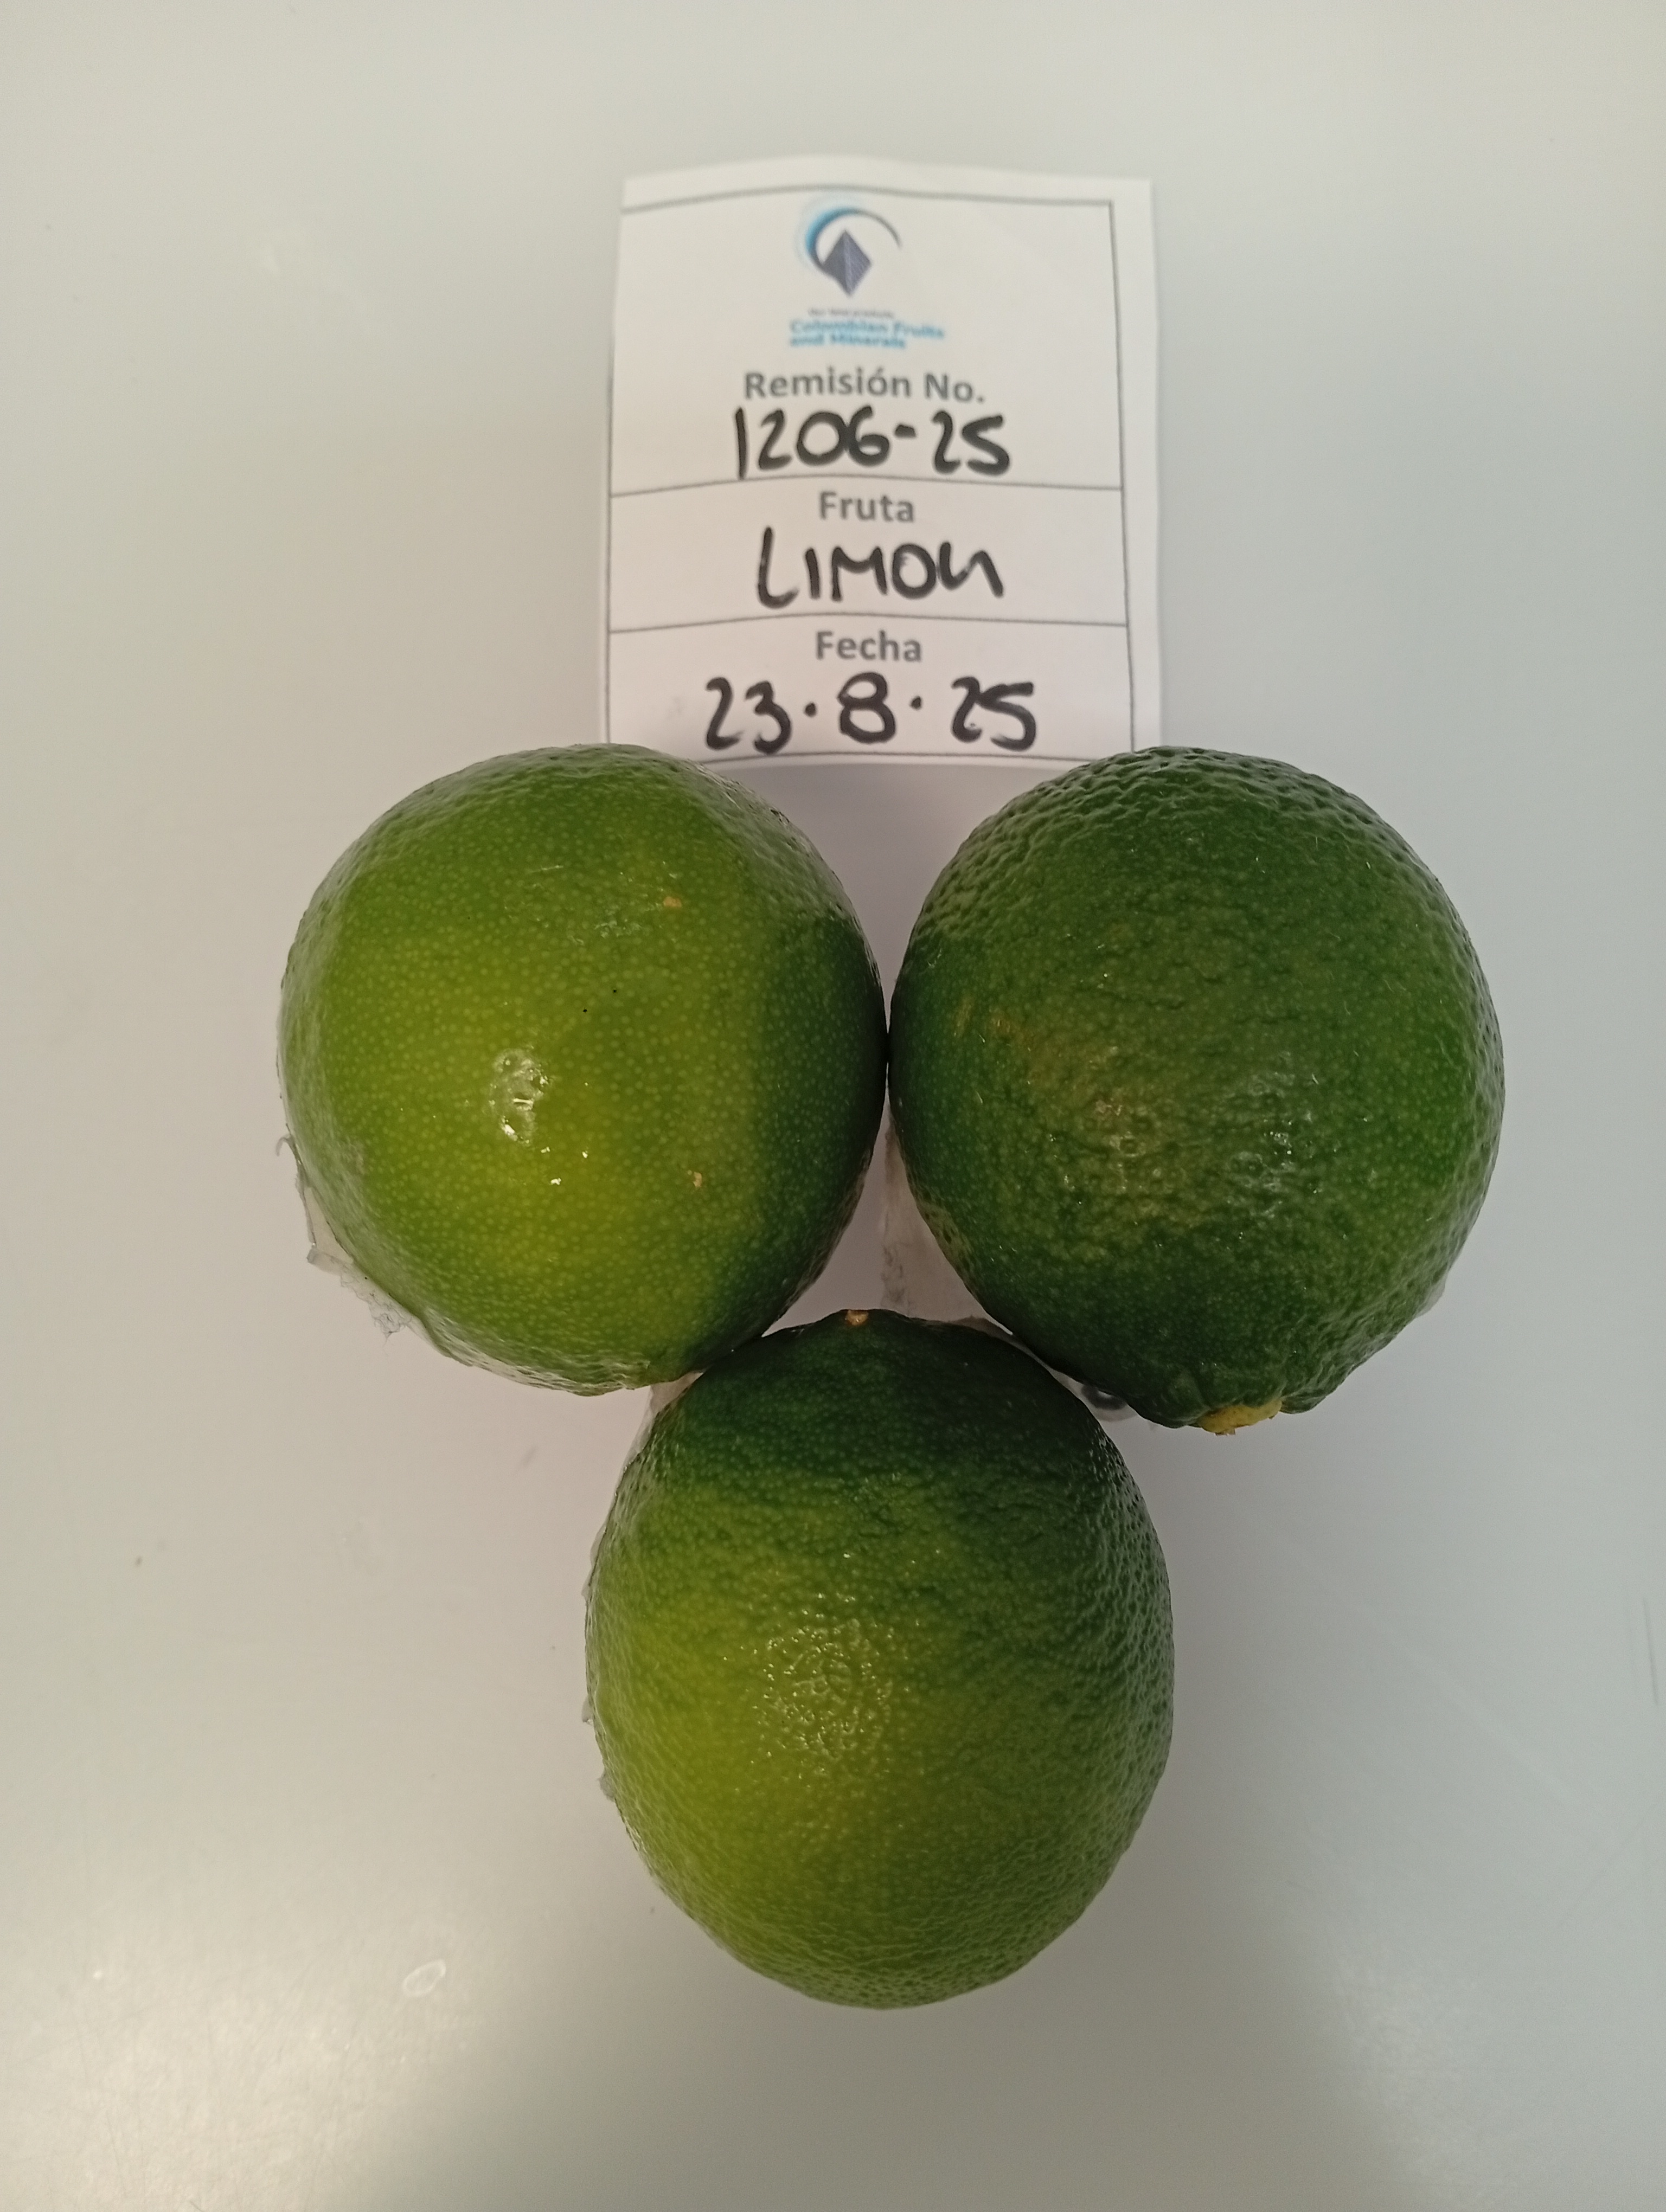 Colombian Fruits
and Minerals
Remisión No.
1206-25
Fruta
LIMON
Fecha
23·8·25